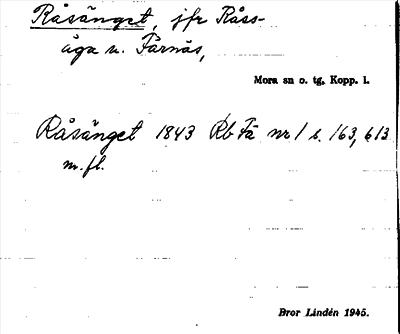 Råsänget, jfr Råss-
åga u. Färnäs,
Mora sn o. tg, Kopp. l.
Råsänget 1843 Rb Fä nr 1 s. 163, 613
m. fl.
Bror Lindén 1945.